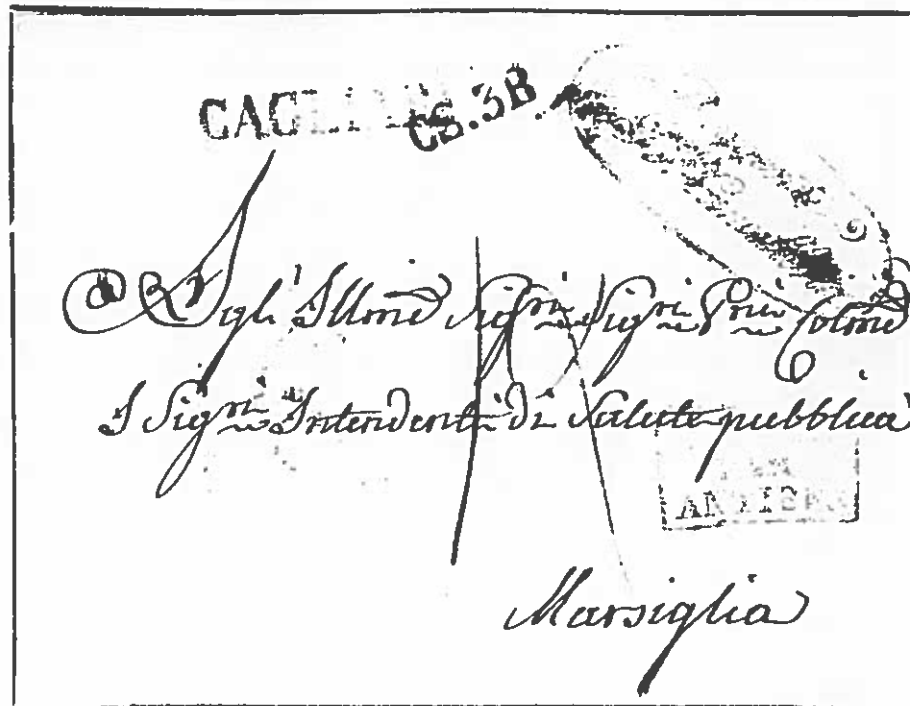 CAGLIARI
CS.3B
Agl' Illmi Sigri Sigri Pni Colmi
I Sigri Intendenti di Salute pubblica
ANTIBES
Marsiglia